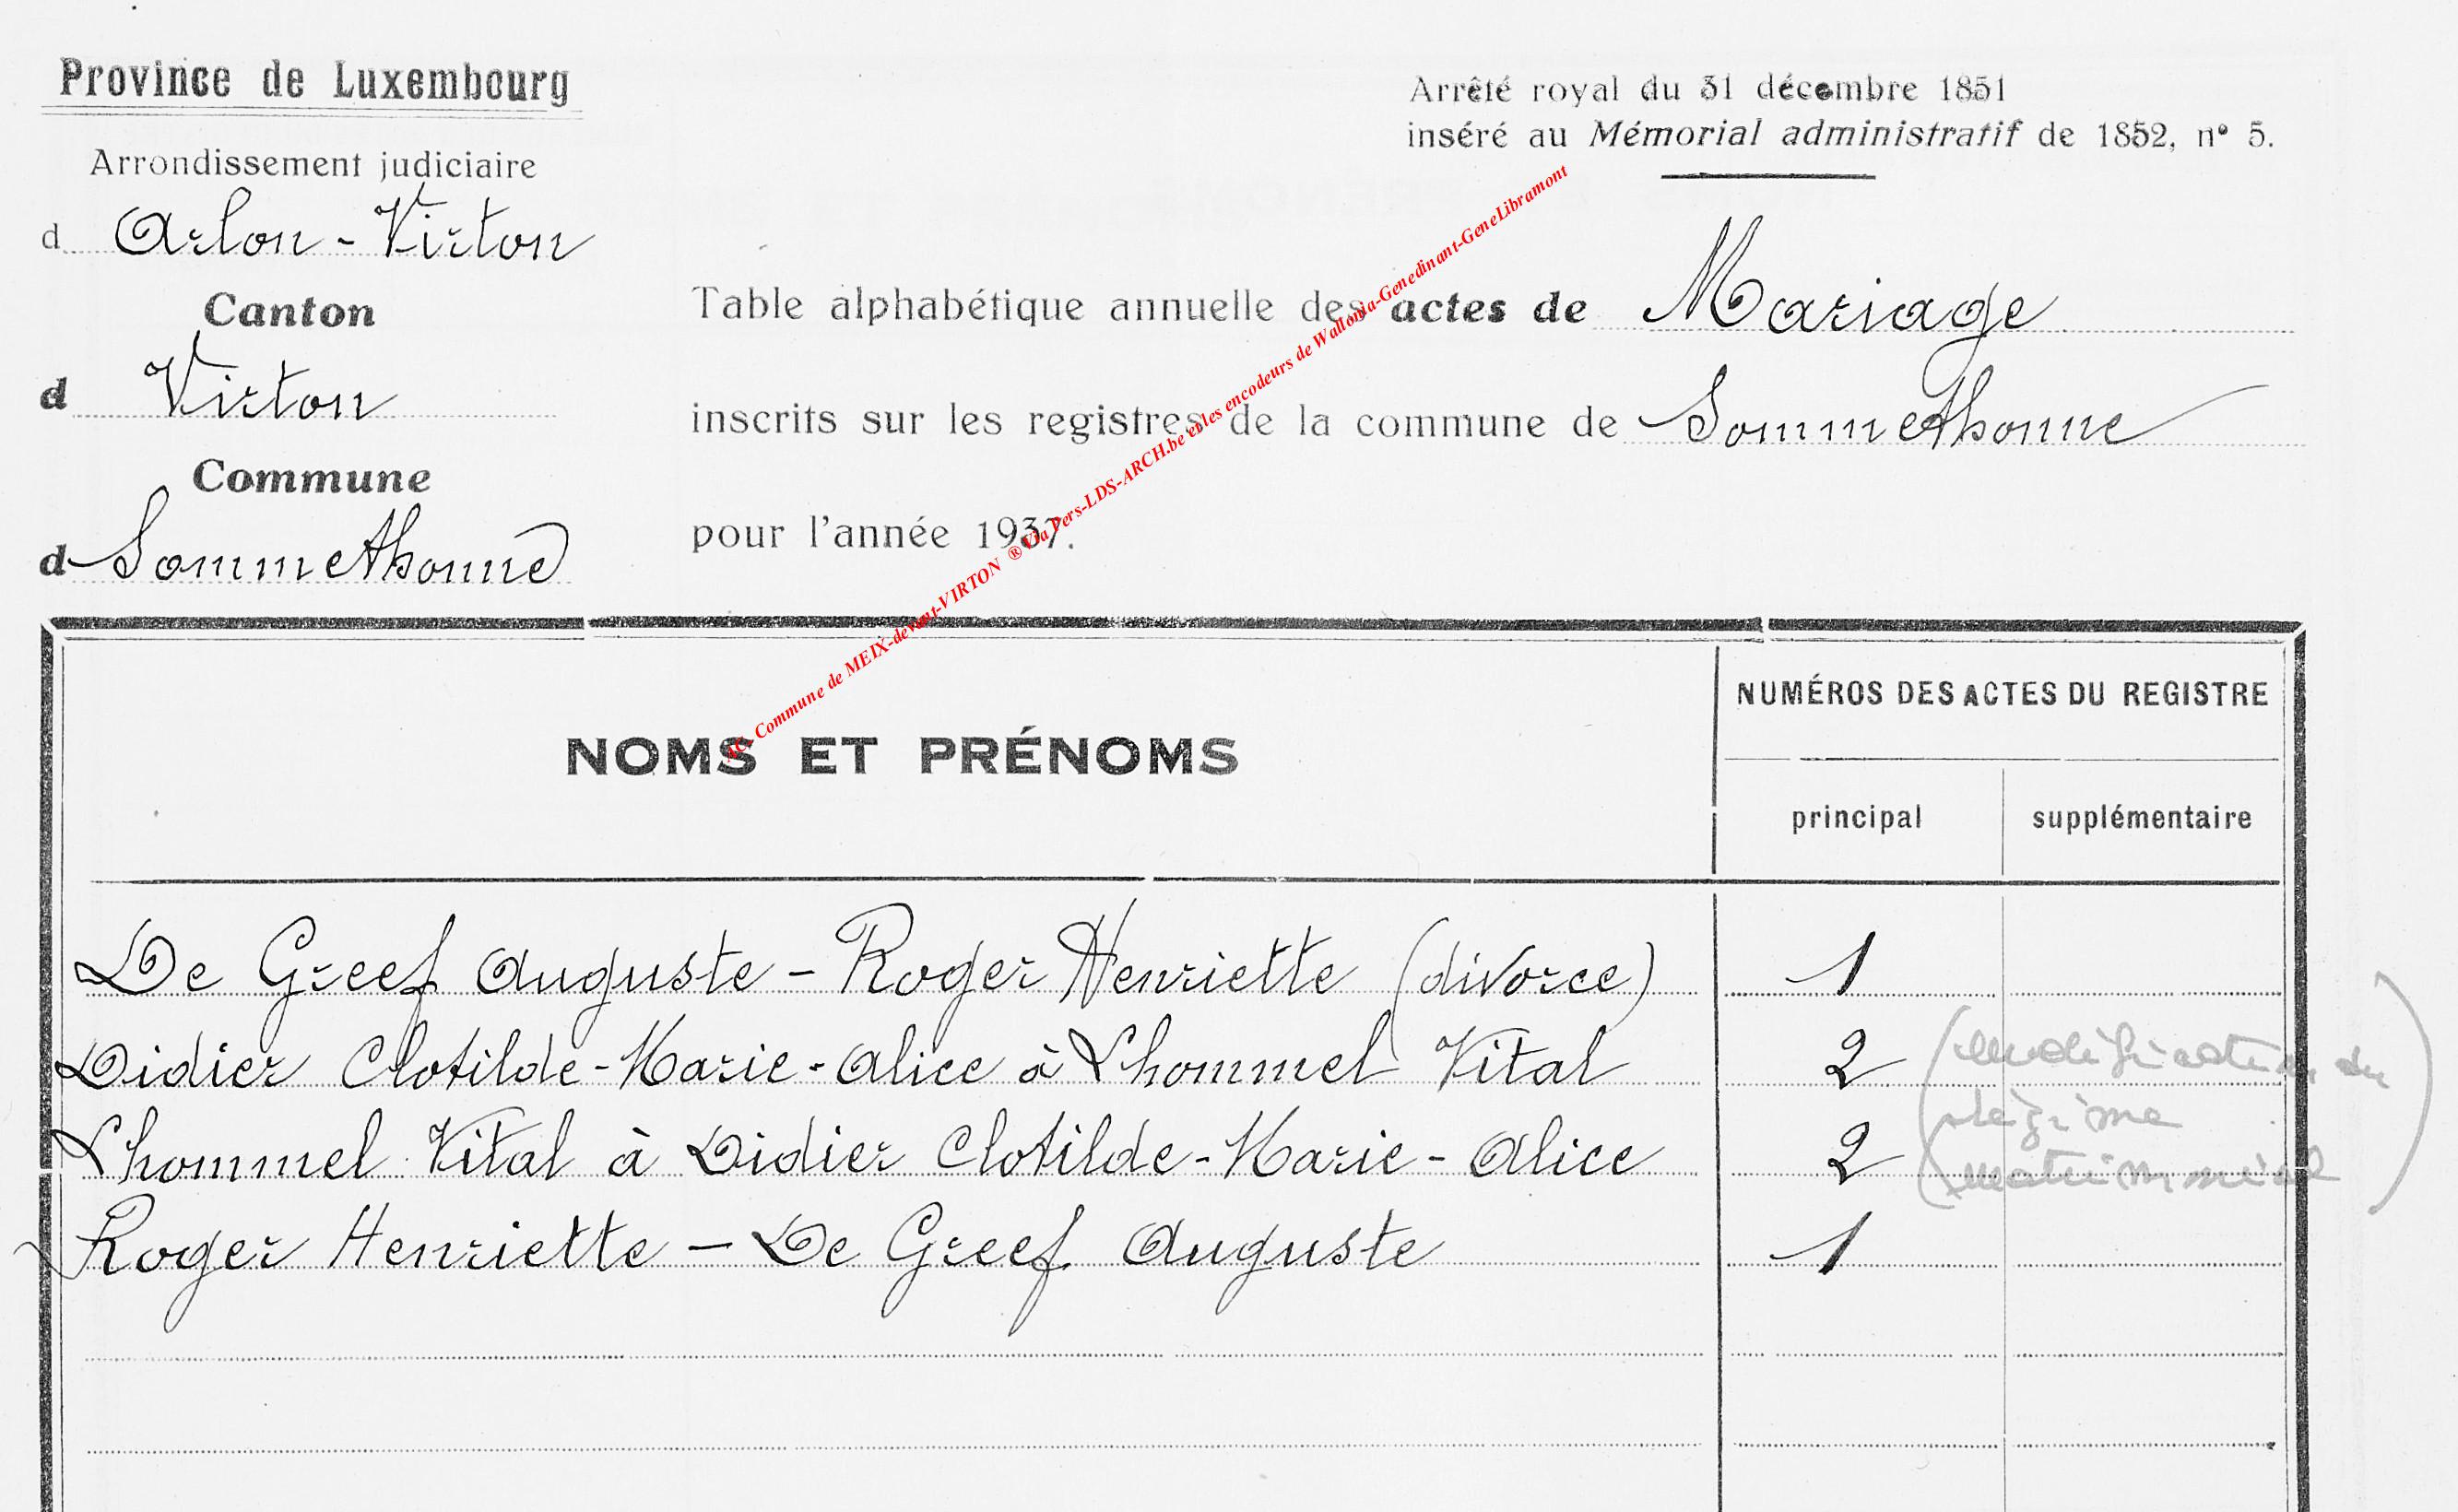 Province de Luxembourg
Arrondissement judiciaire
d Arlon-Virton
Canton
d Virton
Commune
d Sommethonne
Arrêté royal du 31 décembre 1851
inséré au Mémorial administratif de 1852, n° 5.
Table alphabétique annuelle des actes de Mariage
inscrits sur les registres de la commune de Sommethonne
pour l'année 1937.
AC- Commune de MEIX-devant-VIRTON ® Via Pers-LDS-ARCH.be et les encodeurs de Wallonia-Genedinant-GeneLibramont
NOMS ET PRÉNOMS
NUMÉROS DES ACTES DU REGISTRE
principal supplémentaire
De Greef Auguste - Roger Henriette (divorce) 1
Didier Clotilde-Marie-Alice à Lhommel Vital 2
Lhommel Vital à Didier Clotilde-Marie-Alice 2
(modification du
régime
matrimonial)
Roger Henriette - De Greef Auguste 1